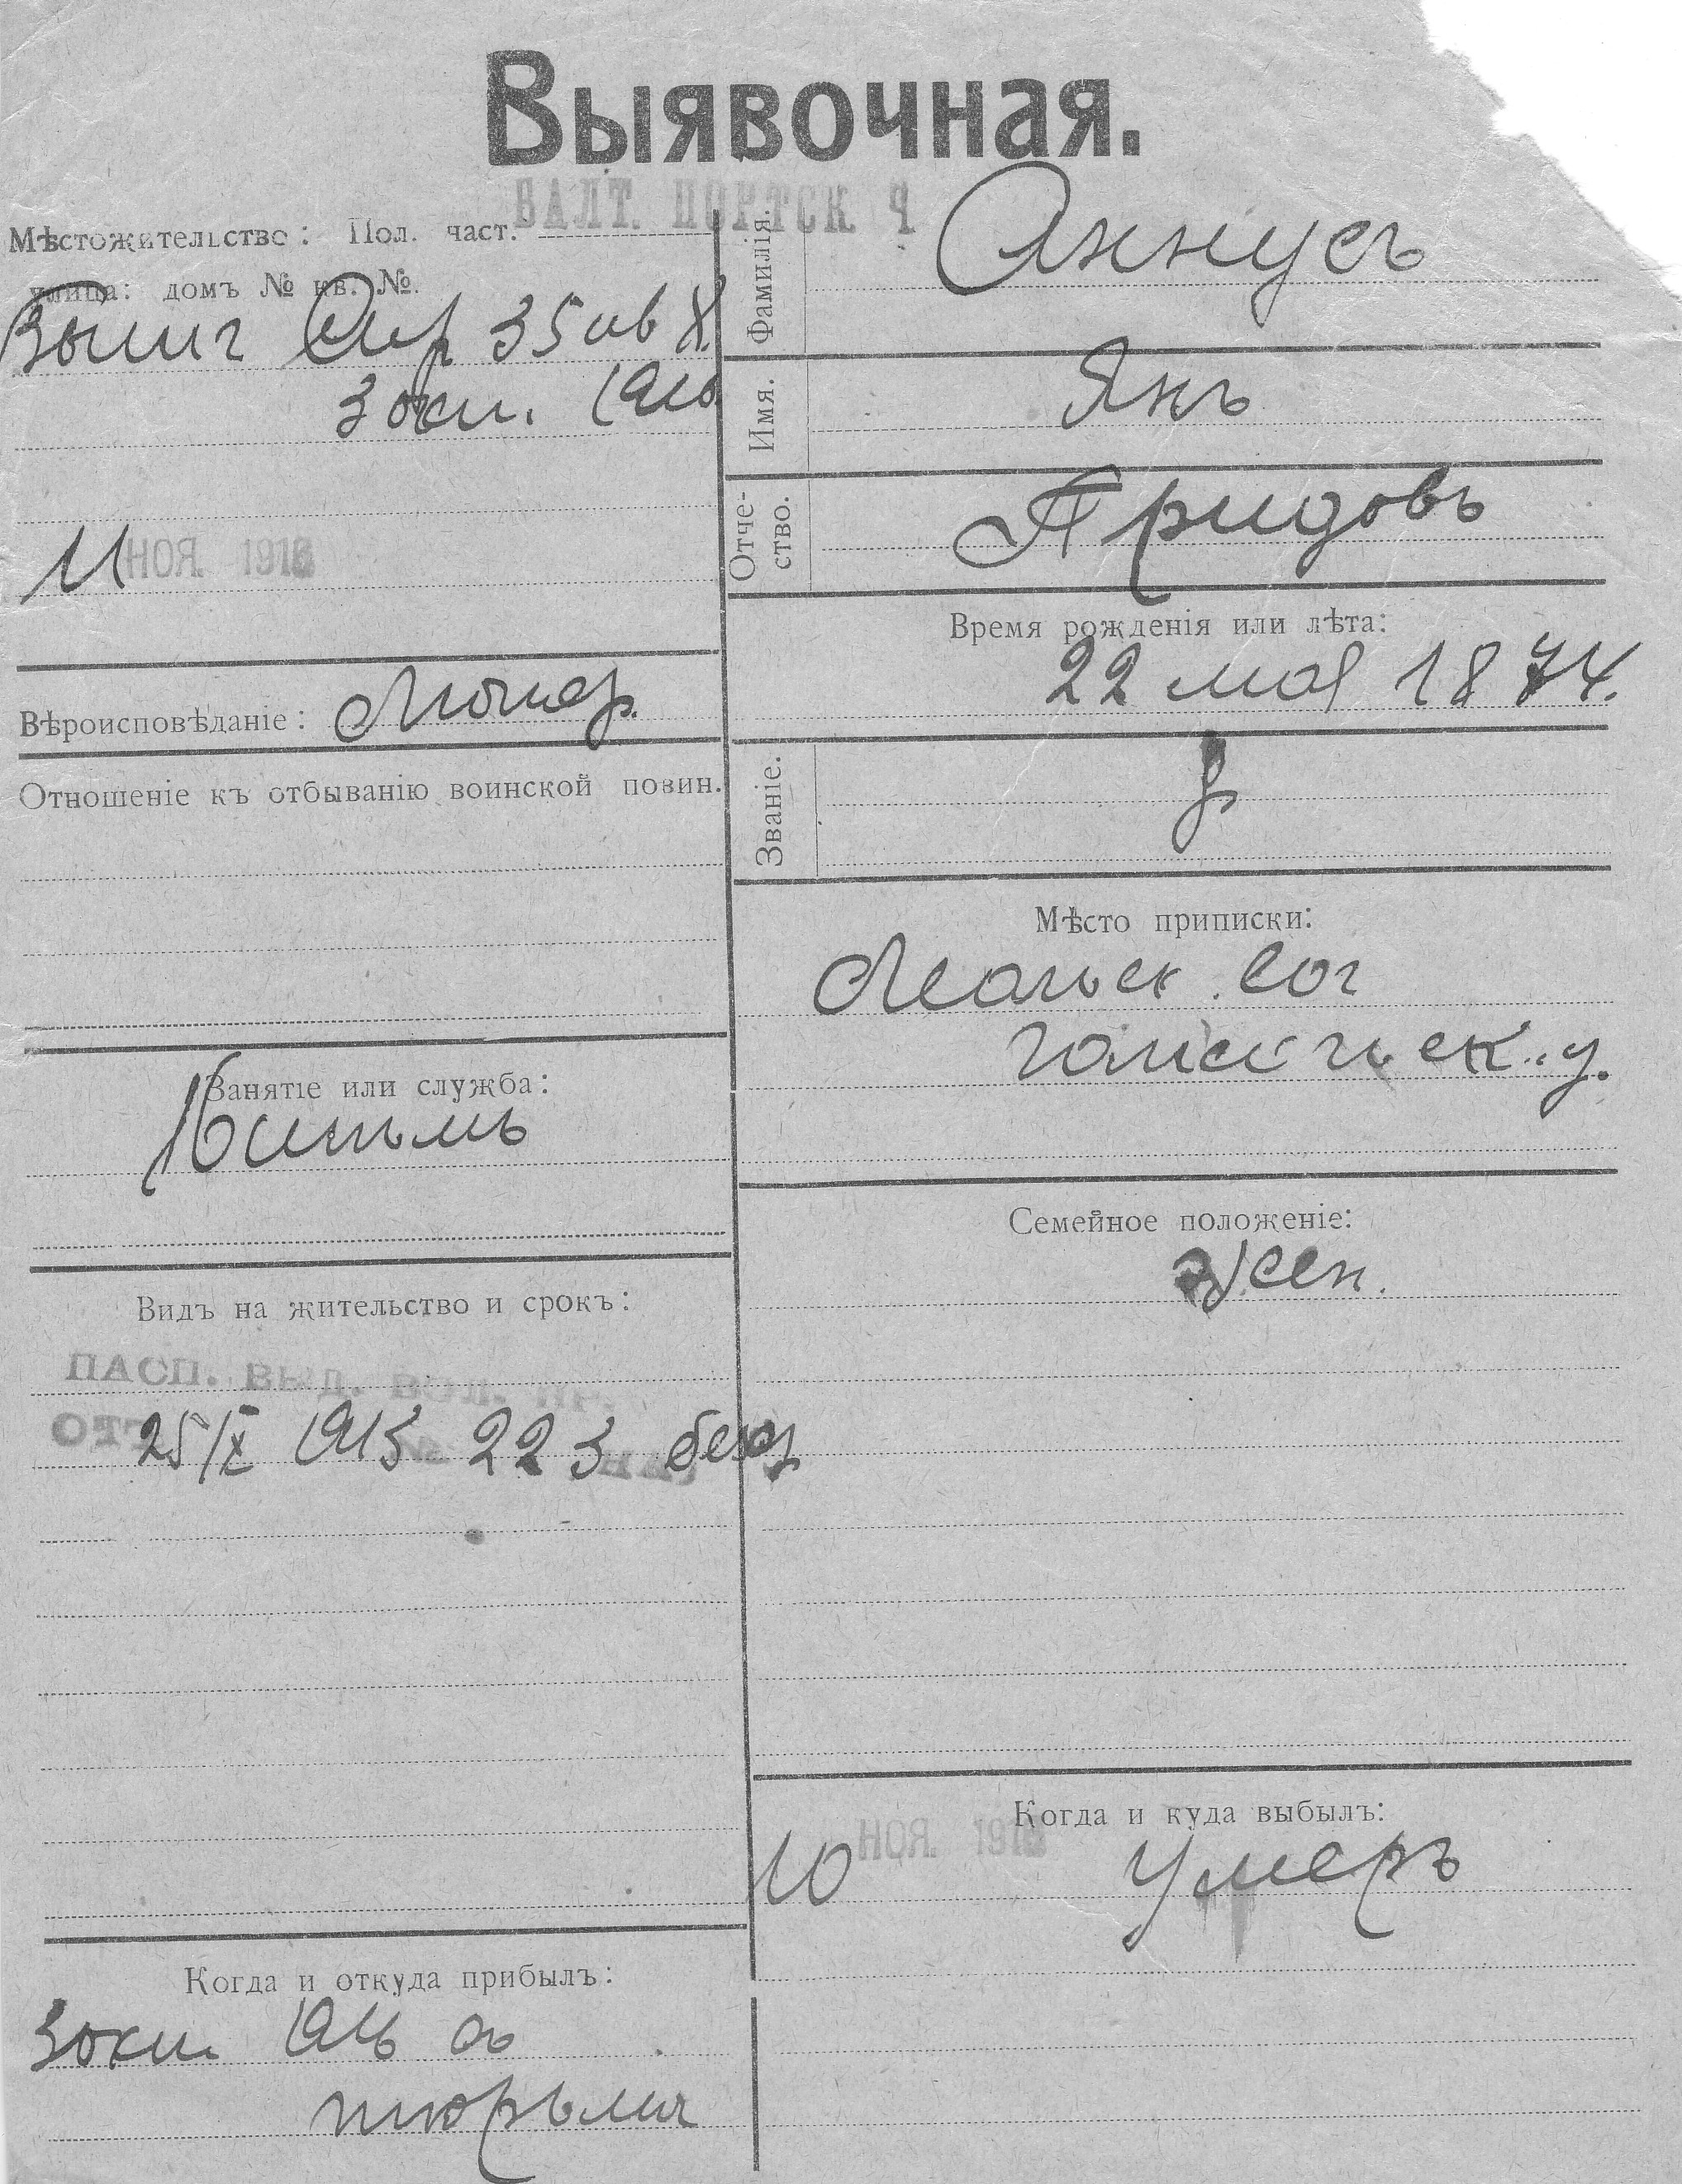 Выявочная.
БАЛТ. ПОРТСК. Ч
Мѣстожительство: Пол. част.
улица: домъ № кв. №.
35
3 окт. 1916
11 НОЯ. 1916
Вѣроисповѣданіе: Лютер.
Отношеніе къ отбыванію воинской повин.
Занятіе или служба:
Видъ на жительство и срокъ:
ПАСП. ВЫД. ВОЛ. ПР.
ОТ 25/X 1915 № 223 безср
Когда и откуда прибылъ:
3 окт. 1916 съ
тюрьмы
Фамилія. Аннусъ
Имя. Янъ
Отче-
ство. Придовъ
Время рожденія или лѣта:
22 мая 1874.
Званіе.
Мѣсто приписки:
у.
Семейное положеніе:
жен.
Когда и куда выбылъ:
10 НОЯ. 1916 умеръ